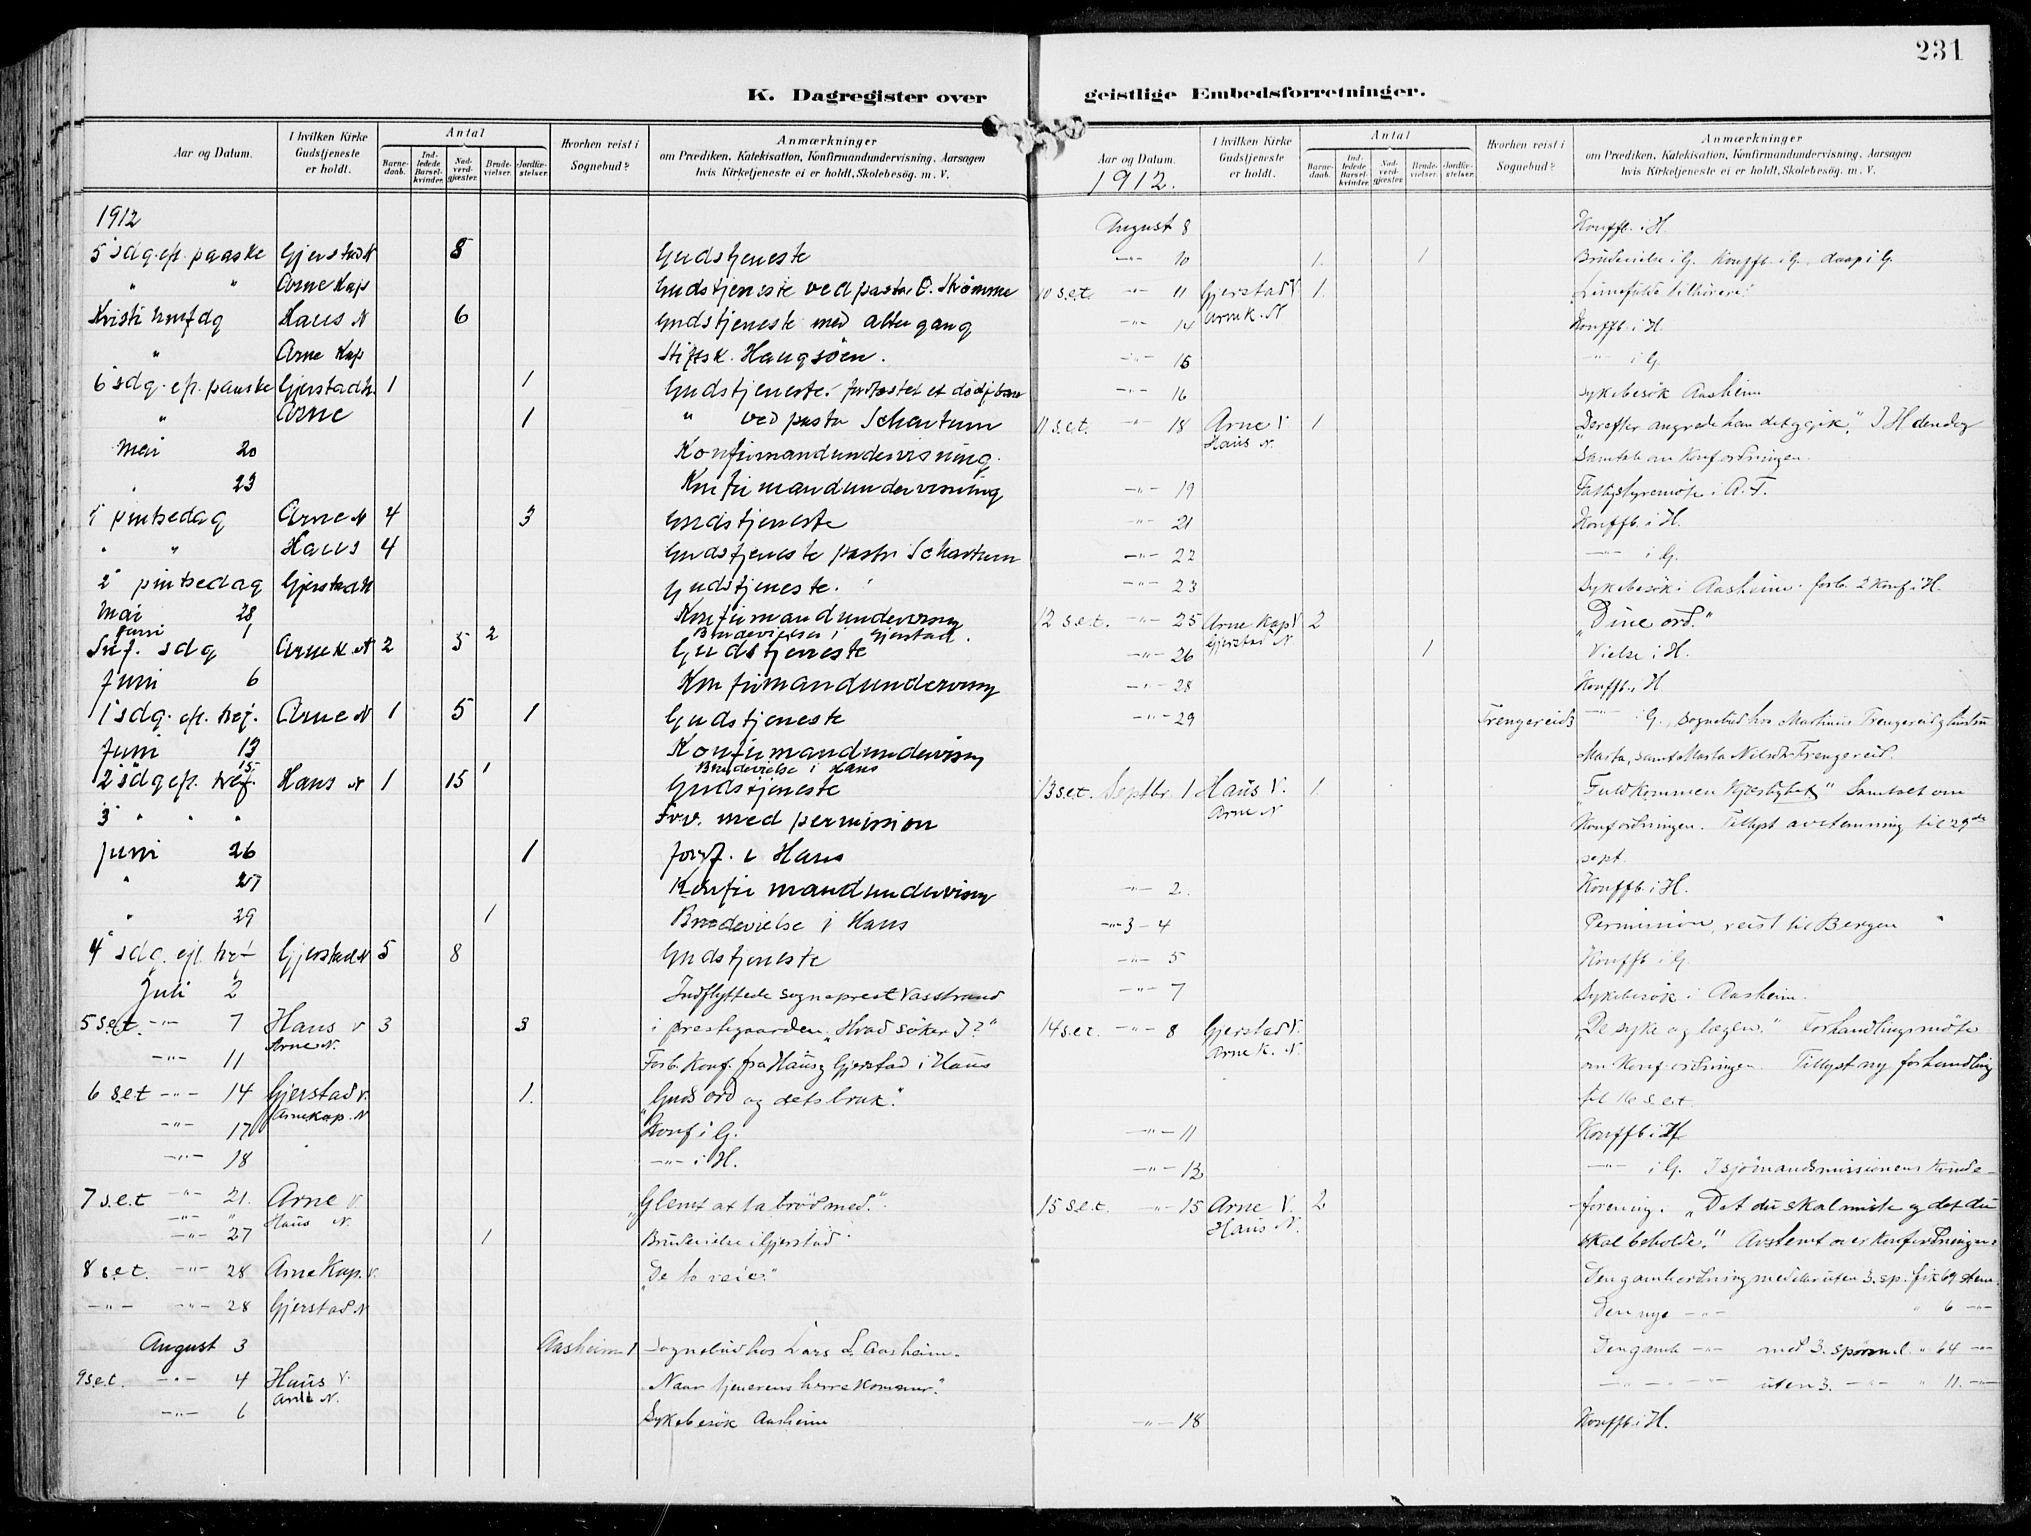 231
K. Dagregister over geistlige Embedsforretninger.
Aar og Datum. I hvilken Kirke Gudstjeneste er holdt. Antal Barnedaab. Indledede Barselkvinder. Nadverdgjæster. Brudevielser. Jordfæstelser. Hvorhen reist i Sognebud? Anmærkninger om Prædiken, Katekisation, Konfirmandundervisning, Aarsagen hvis Kirketjeneste ei er holdt, Skolebesøg. m. V.
1912
5' sdg. ef. paaske Gjerstad N 8 Gudstjeneste
" " Arne Kap Gudstjeneste ved pastor O. Strømme
Kristi hmf dg Haus N 6 Gudstjeneste med altergang
" Arne Kap Stiftsk. Haugsøen.
6' sdg. ef. paaske Gjerstad N. 1 1 Gudstjeneste. et dödf. barn
" Arne 1 " ved pastor Schartum
Mai 20 Konfirmandundervisning.
" 23 Konfirmandundervisning
1' pintsedag Arne N 4 3 Gudstjeneste
" " Haus 4 Gudstjeneste pastor Schartum
2' pintsedag Gjerstad N Gudstjeneste.
Mai 28 Konfirmandundervisng
Juni 1 2 Brudevielser i Gjerstad.
Tref. sdg Arne K. N 2 5 Gudstjeneste
Juni 6 Konfirmandundervisng
1' sdg. ef. tref. Arne N 1 5 1 Gudstjeneste
Juni 13 Konfirmandundervisng
15 1 Brudevielse i Haus
2' sdg ef. tref. Haus N 1 15 Gudstjeneste
3' " " " Frv. med permission
Juni 26 1 Jordf. i Haus
" 27 Konfirmandundervisng
" 29 1 Brudevielse i Haus
4' sdg. eft. tref Gjerstad N 5 8 Gudstjeneste
Juli 2 Indflyttede sogneprest Vasstrand
5 s.e.t. -"- 7 Haus V 3 3 i prestegaarden. "Hvad søker I?"
Arne N.
-"- 11 Forb. Konf. fra Haus og Gjerstad i Haus
6 s.e.t -"- 14 Gjerstad V. 1. "Guds ord og dets bruk".
Arne kap. N
-"- 17 Konf i G.
-"- 18 -"- i H.
7 s.e.t -"- 21. Arne V. "Glemt at ta brød med."
-"- " Haus N.
-"- 27 1 Brudevielse i Gjerstad.
8 s.e.t. -"- 28 Arne Kap. V. "De to veie."
-"- -"- 28 Gjerstad N
August 3 Aasheim 1 Sognebud hos Lars L. Aasheim.
9 s.e.t. -"- 4 Haus V. "Naar tjenerens herre kommer".
Arne N.
-"- 6 Sykebesøk Aasheim
Aar og Datum. I hvilken Kirke Gudstjeneste er holdt. Antal Barnedaab. Indledede Barselkvinder. Nadverdgjæster. Brudevielser. Jordfæstelser. Hvorhen reist i Sognebud? Anmærkninger om Prædiken, Katekisation, Konfirmandundervisning, Aarsagen hvis Kirketjeneste ei er holdt, Skolebesøg. m. V.
1912.
August 8 Konffb. i H.
-"- 10 1. 1 Brudevielse i G. Konffb. i G. daap i G.
10 s.e.t. -"- 11 Gjerstad V 1. tilhörere"
Arne k. N
-"- 14 Konffb. i H
-"- 15 -"- i G.
-"- 16 Sykebesök Aasheim
11 s.e.t. -"- 18 Arne V 1 "Derefter angrede han det og gik." I H den dag
Haus N. Samtale om Konfordningen.
-"- 19 i A. T.
-"- 21 Konffb. i H.
-"- 22 -"- i G.
-"- 23 Sykebesök i Aasheim. forb. 2 Konf i H.
12 s.e.t. -"- 25 Arne Kap V 2 "Dine ord."
Gjerstad N.
-"- 26 1 Vielse i H.
-"- 28 Konffb. i H
-"- 29 Trengereid 3 -"- i G., Sognebud hos Martinius Trengereid og hustru
Marta, samt Marta Nilsdtr Trengereid.
13 s.e.t. Septbr. 1 Haus V. 1. "Fuldkommen Kjærlighet" Samtale om
Arne N Konfordningen. Tillyst avstemning til 29de
sept.
-"- 2. Konffb. i H.
-"- 3-4 Permission, reist til Bergen
-"- 5 Konffb i G.
-"- 7 Sykebesök i Aasheim.
14 s.e.t. -"- 8 Gjerstad V. "De syke og lægen." Forhandlingsmöte
Arne K. N. om Konf. ordningen. Tillyst ny forhandling
til 16 s.e.t.
-"- 11 Konffb i H
-"- 12 -"- i G. I sjömandsmissionens Kvinde-
15 s.e.t. -"- 15 Arne V. 2 forening. "Det du skal miste og det du
Haus N. skal beholde." Avstemt over Konfordningen:
Den gamle ordning med uten 3. sp. fik 69 stem
Den nye -"- " 6 -"-
Den gamle -"- med 3. spörsm. " 64 -"-
-"- -"- uten 3. -"- " 11. -"-
-"- 18 Konffb. i H.